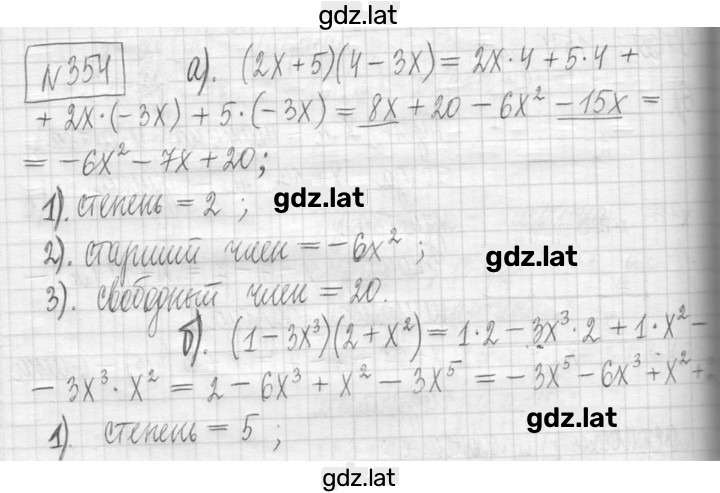 gdz.lat
N354 а). (2x+5)(4-3x)=2x·4+5·4+
+2x·(-3x)+5·(-3x)=8x+20-6x²-15x=
=-6x²-7x+20;
1). степень=2;
gdz.lat
2). старший член=-6x²;
gdz.lat
3). свободный член=20.
б). (1-3x³)(2+x²)=1·2-3x³·2+1·x²-
-3x³·x²=2-6x³+x²-3x⁵=-3x⁵-6x³+x²+
gdz.lat
1). степень=5;
gdz.lat